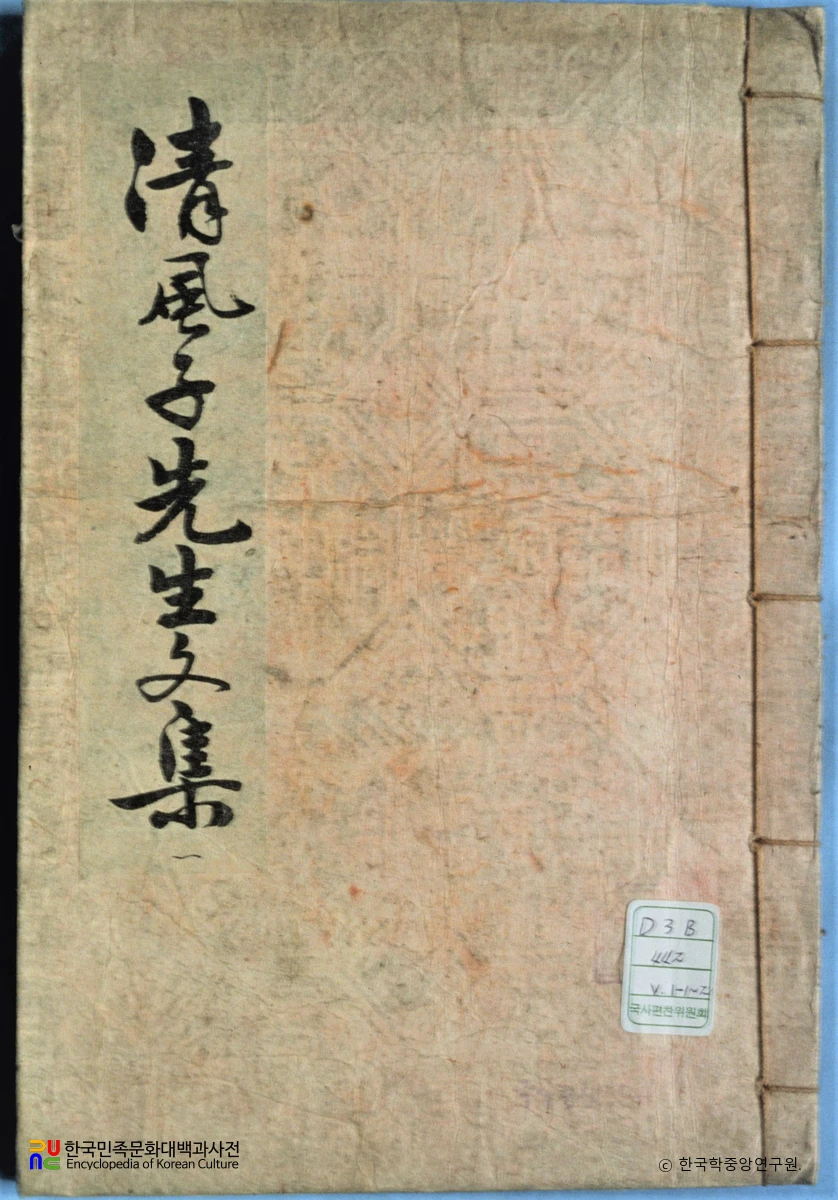 清風子先生文集
一
D 3 B
442
V. 1-1~2
국사편찬위원회
한국민족문화대백과사전
Encyclopedia of Korean Culture
© 한국학중앙연구원.